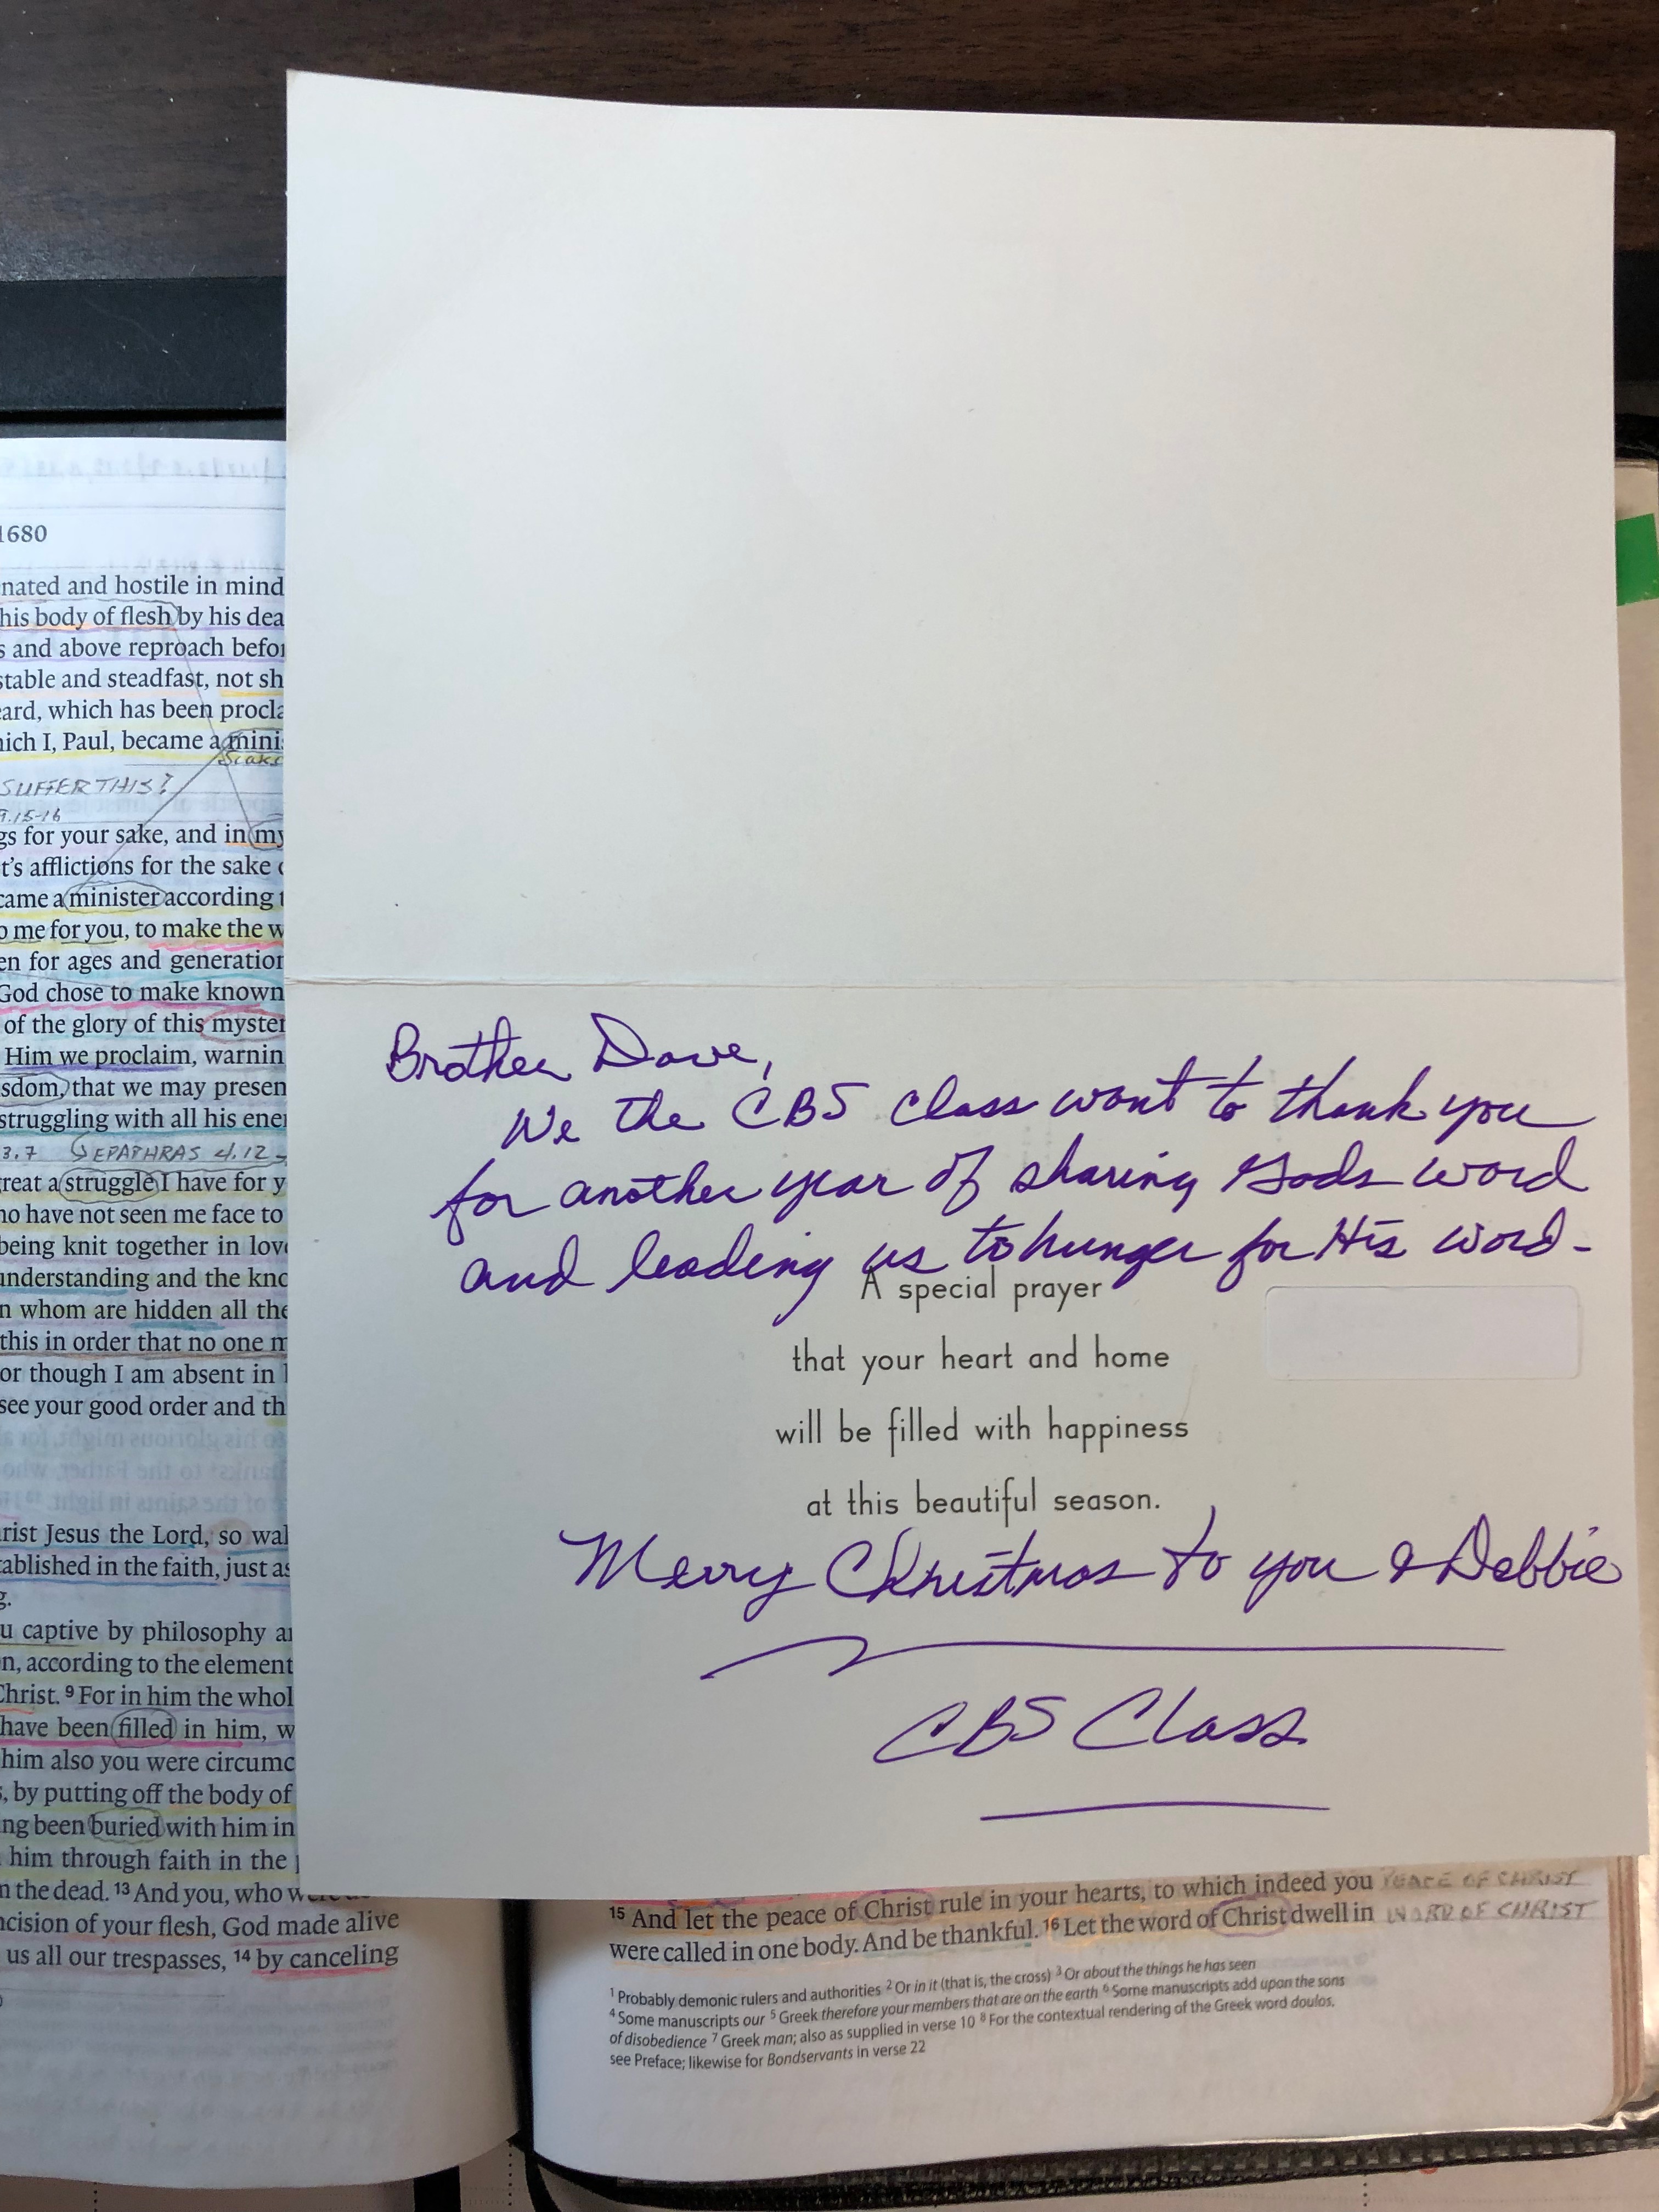 1680
nated and hostile in mind
his body of flesh by his dea
s and above reproach befor
stable and steadfast, not sh
eard, which has been procla
hich I, Paul, became a minis
SUFFER THIS?
9.15-16
gs for your sake, and in my
t's afflictions for the sake o
came a minister according t
o me for you, to make the w
en for ages and generation
God chose to make known
of the glory of this myster
Him we proclaim, warnin
sdom, that we may presen
struggling with all his ener
3.7 EPAPHRAS 4.12
great a struggle I have for y
ho have not seen me face to
being knit together in love
understanding and the kno
n whom are hidden all the
this in order that no one m
or though I am absent in
see your good order and th
rist Jesus the Lord, so wal
tablished in the faith, just as
g.
u captive by philosophy an
n, according to the element
Christ. 9 For in him the whol
have been filled in him, w
him also you were circumc
s, by putting off the body of
ng been buried with him in
him through faith in the
n the dead. 13 And you, who w
ncision of your flesh, God made alive
us all our trespasses, 14 by canceling
Brother Dave,
We the CBS class want to thank you
for another year of sharing Gods word
and leading us to hunger for His word-
A special prayer
that your heart and home
will be filled with happiness
at this beautiful season.
Merry Christmas to you & Debbie
CBS Class
15 And let the peace of Christ rule in your hearts, to which indeed you PEACE OF CHRIST
were called in one body. And be thankful. 16 Let the word of Christ dwell in WORD OF CHRIST
1 Probably demonic rulers and authorities 2 Or in it (that is, the cross) 3 Or about the things he has seen
4 Some manuscripts our 5 Greek therefore your members that are on the earth 6 Some manuscripts add upon the sons
of disobedience 7 Greek man; also as supplied in verse 10 8 For the contextual rendering of the Greek word doulos,
see Preface; likewise for Bondservants in verse 22